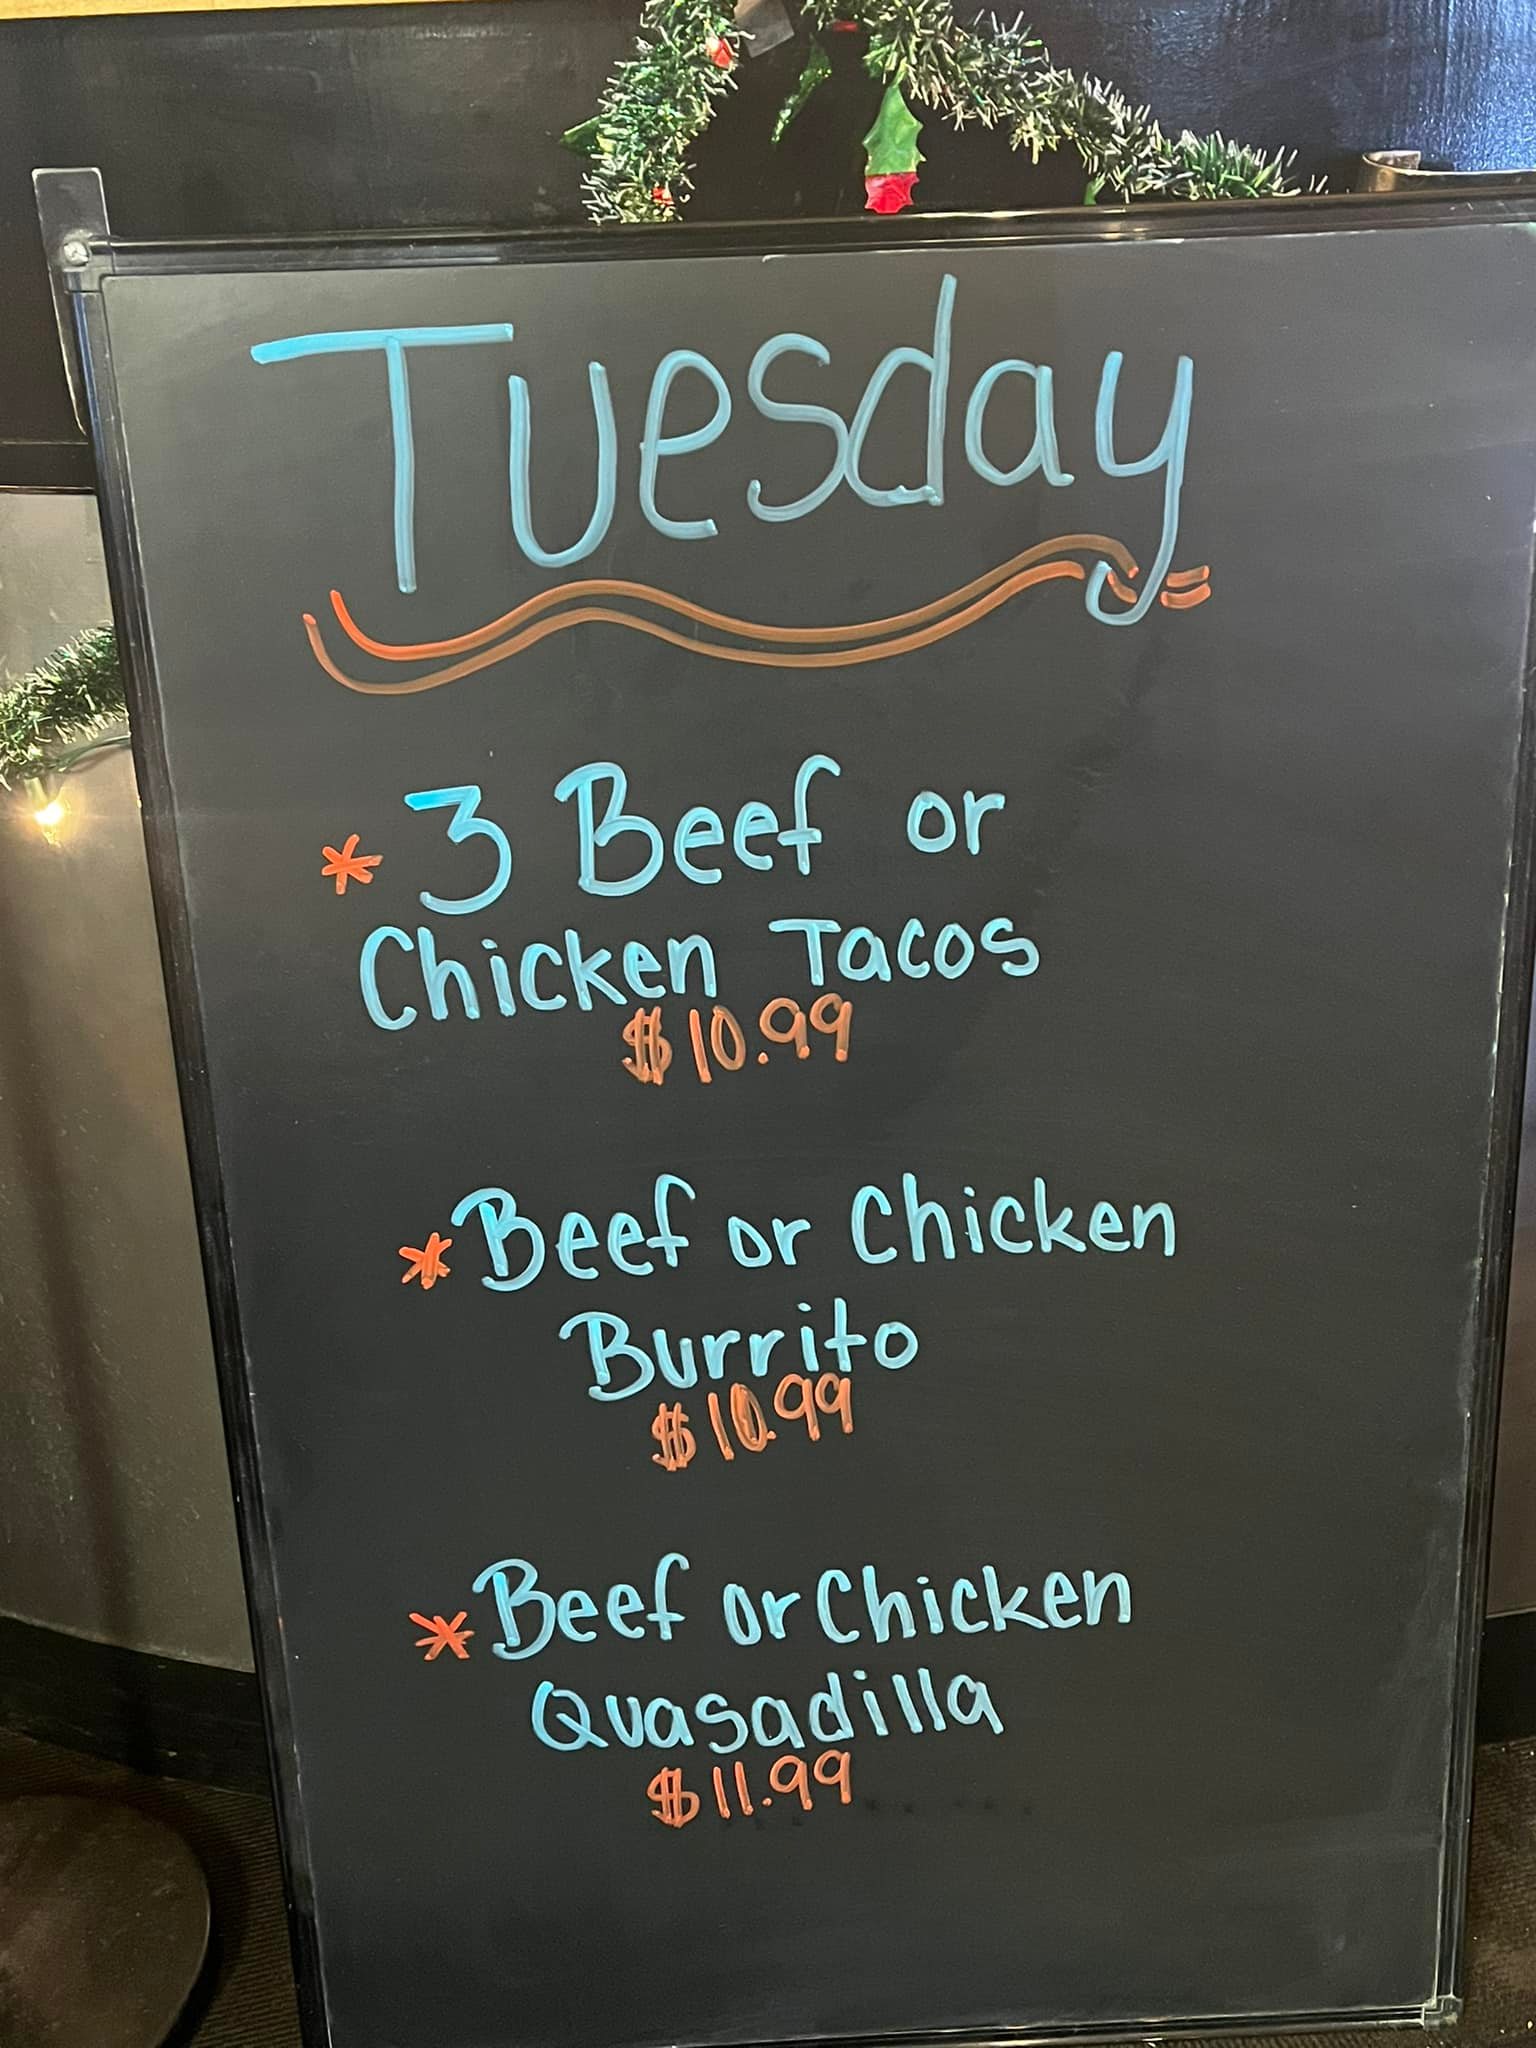 Tuesday
* 3 Beef or
Chicken Tacos
$10.99
* Beef or Chicken
Burrito
$10.99
* Beef or Chicken
Quasadilla
$11.99